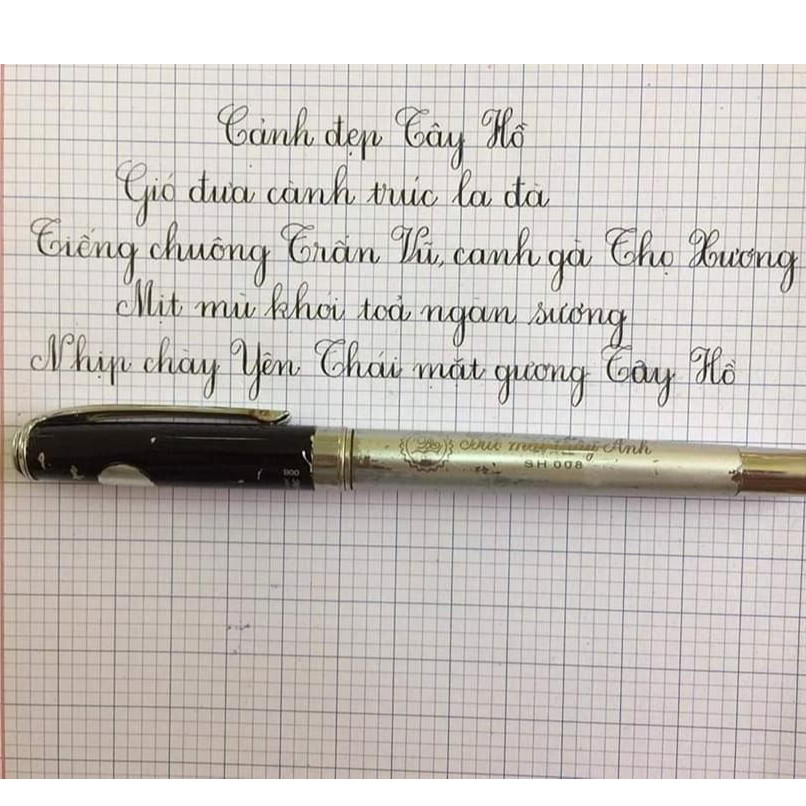 Cảnh đẹp Tây Hồ
Gió đưa cành trúc la đà
Tiếng chuông Trấn Vũ, canh gà Thọ Xương
Mịt mù khói toả ngàn sương
Nhịp chày Yên Thái mặt gương Tây Hồ
Ánh
SH 008
008